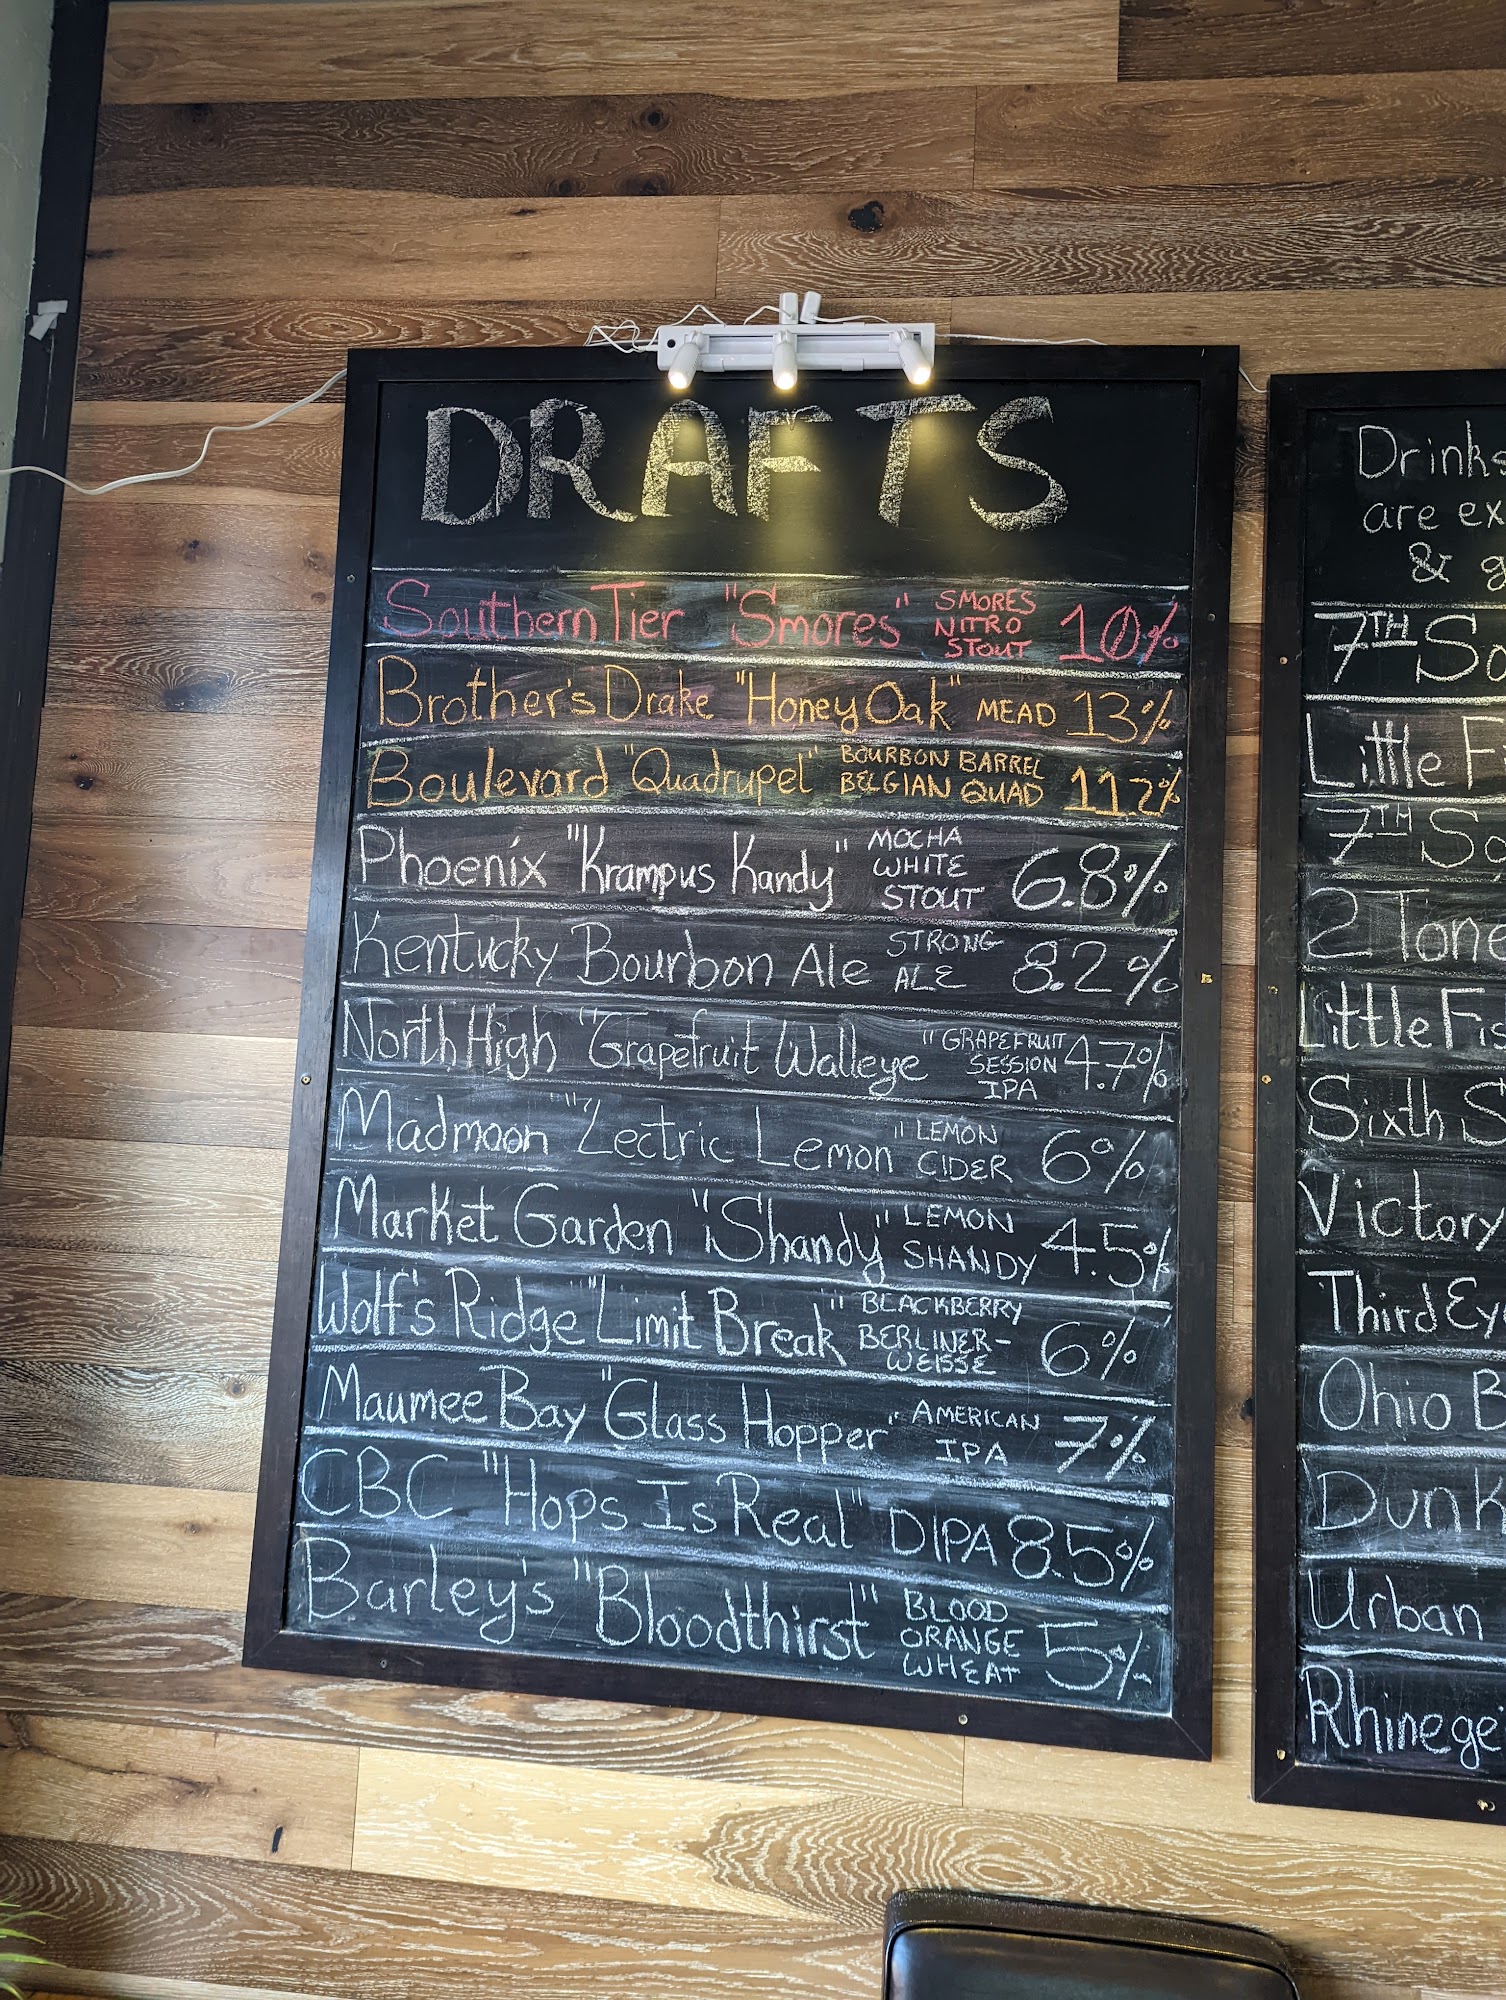 DRAFTS
Southern Tier "Smores" SMORES NITRO STOUT 10%
Brother's Drake "Honey Oak" MEAD 13%
Boulevard "Quadrupel" BOURBON BARREL BELGIAN QUAD 11.2%
Phoenix "Krampus Kandy" MOCHA WHITE STOUT 6.8%
Kentucky Bourbon Ale STRONG ALE 8.2%
North High "Grapefruit Walleye" GRAPEFRUIT SESSION IPA 4.7%
Madmoon "Lectric Lemon" LEMON CIDER 6%
Market Garden "¡Shandy" LEMON SHANDY 4.5%
Wolf's Ridge "Limit Break" BLACKBERRY BERLINER-WEISSE 6%
Maumee Bay "Glass Hopper" AMERICAN IPA 7%
CBC "Hops Is Real" DIPA 8.5%
Barley's "Bloodthirst" BLOOD ORANGE WHEAT 5%
Drinks
are ex
& g
7TH So
Little F
7TH So
2 Tone
Little Fis
Sixth S
Victory
Third Ey
Ohio B
Dunk
Urban
Rhinege